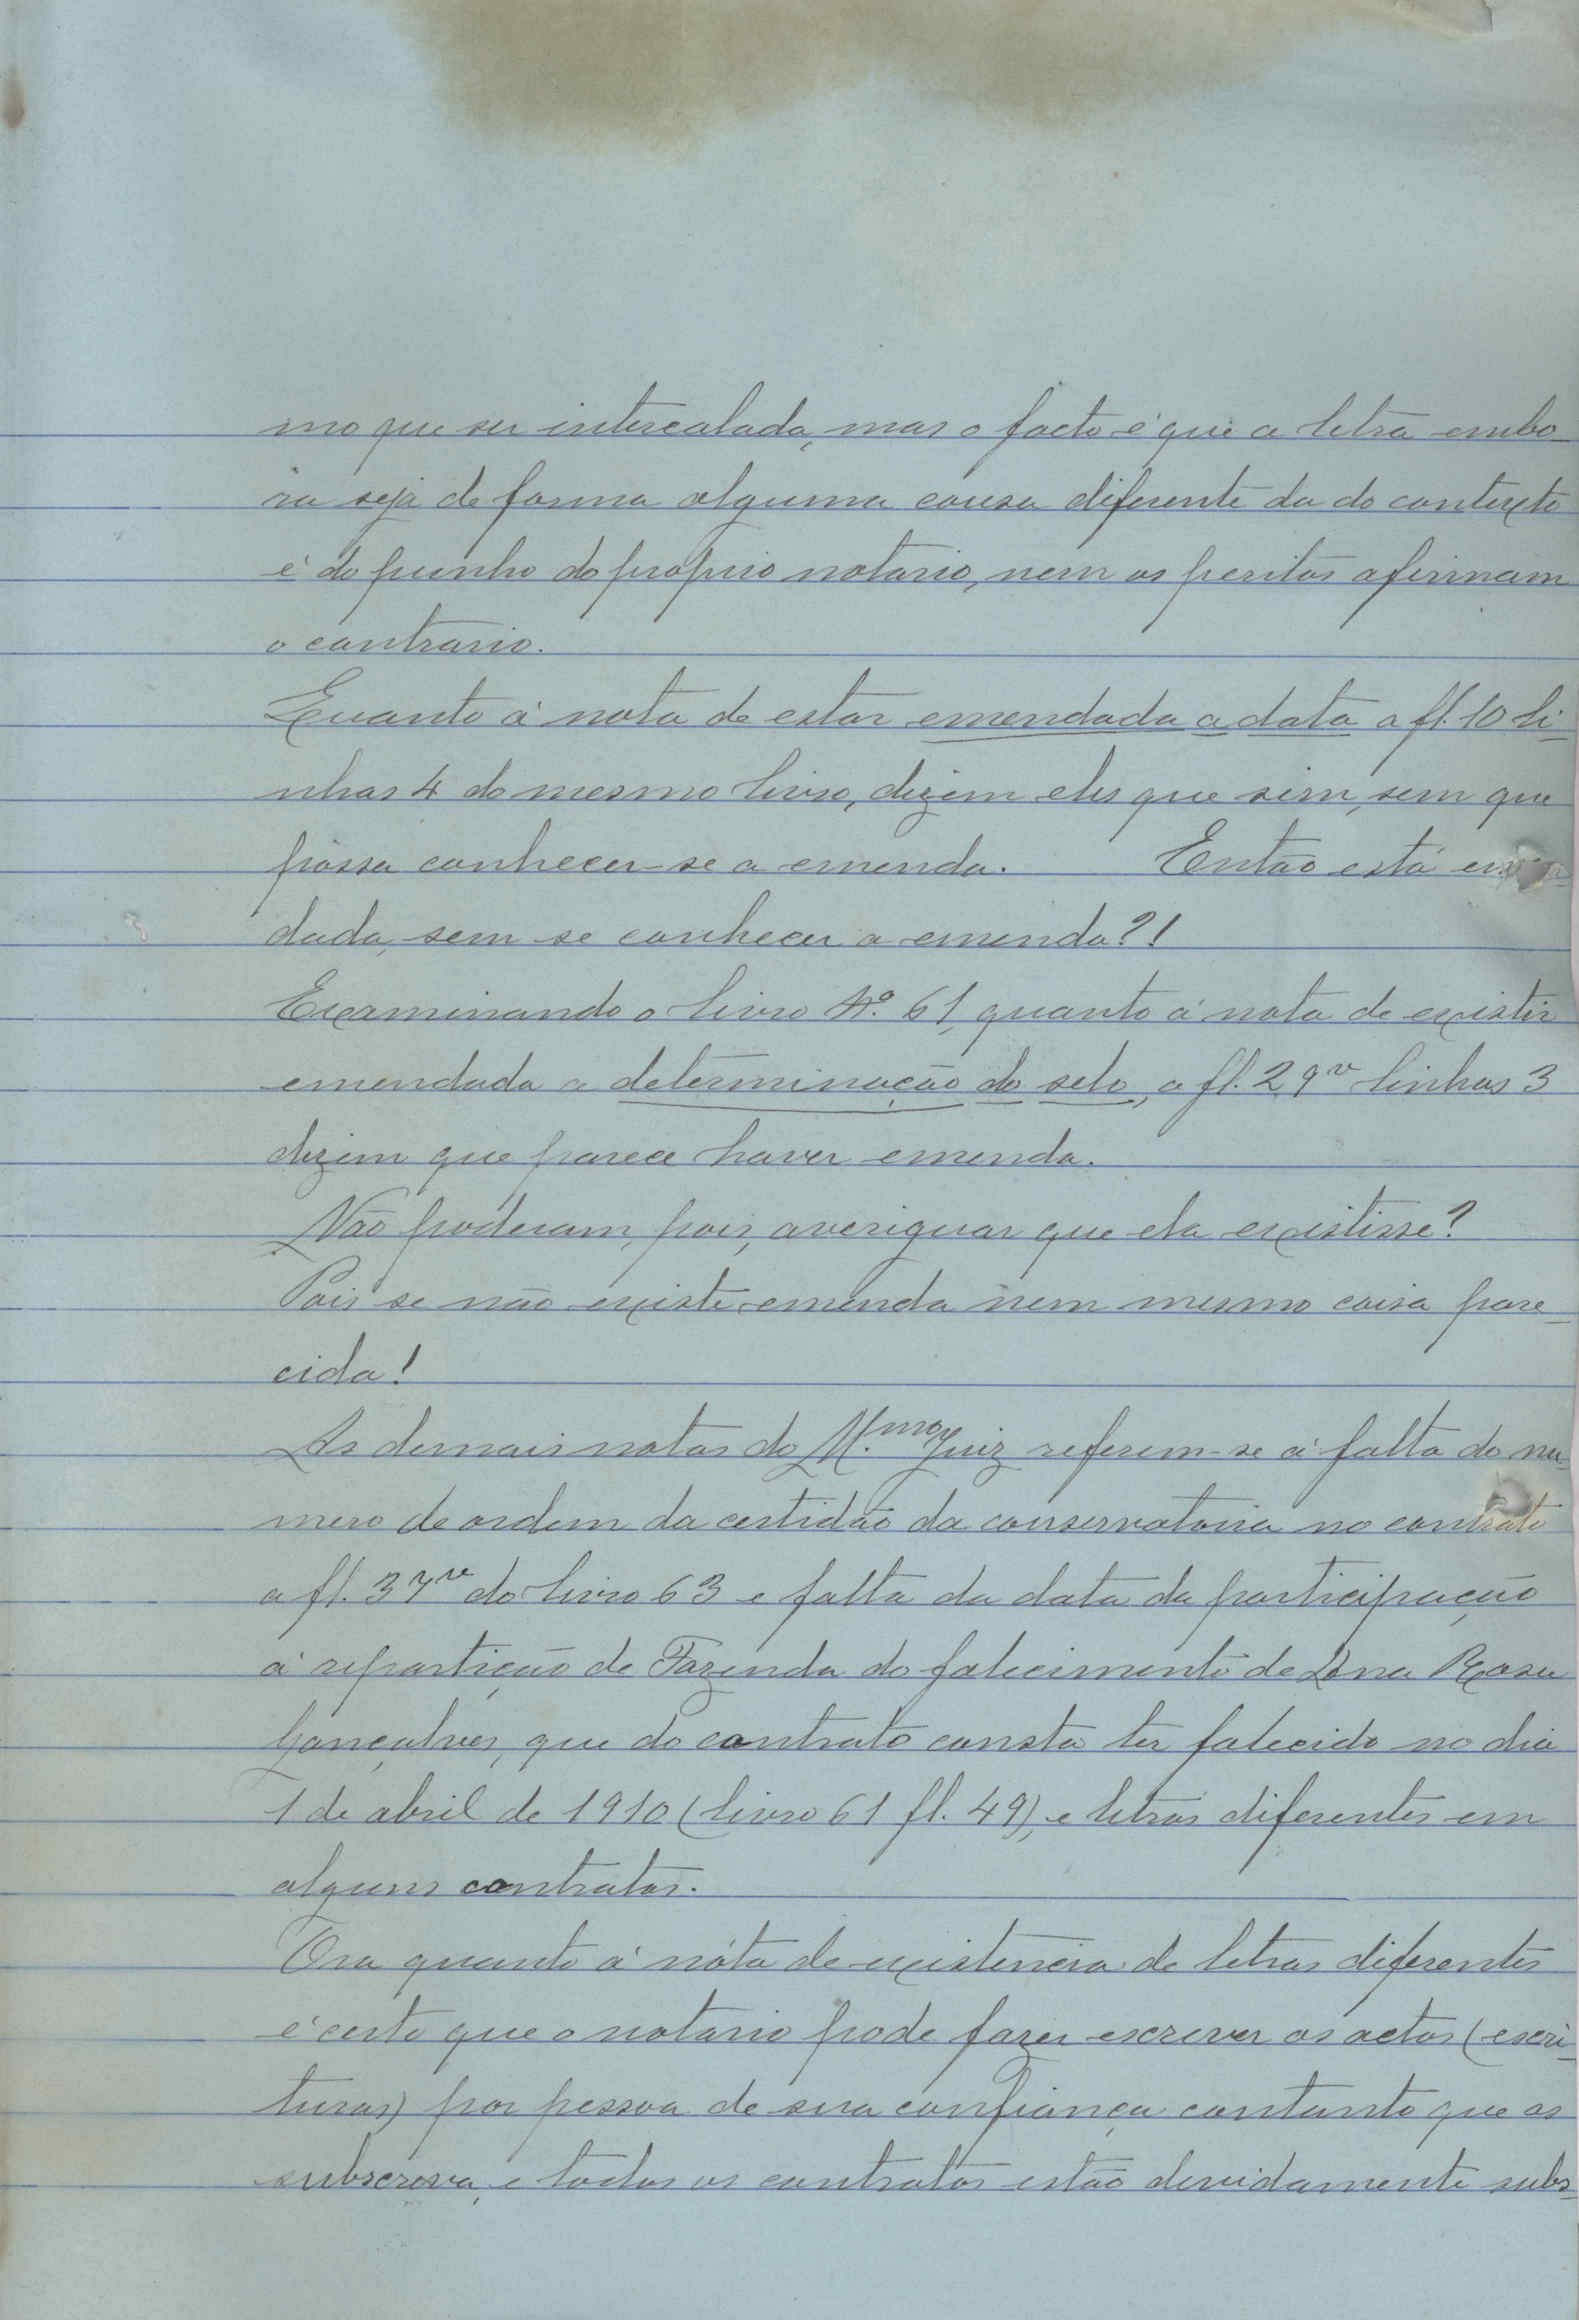 mo que ser intercalada, mas o facto é que a letra embo-
ra seja de forma alguma cousa diferente da do contexto
é do punho do proprio notario, nem os peritos afirmam
o contrario.
Quanto á nota de estar emendada a data a fl. 10 li-
nhas 4 do mesmo livro, dizem eles que sim, sem que
póssa conhecer-se a emenda. Então está emen-
dada, sem se conhecer a emenda?!
Examinando o livro Nº. 61, quanto á nota de existir
emendada a determinação do selo, a fl. 29v linhas 3
dizem que parece haver emenda.
Não poderam, pois, averiguar que ela existisse?
Pois se não existe emenda nem mesmo coisa pare-
cida!
As demais notas do M.mo Juiz referem-se á falta do nu-
mero de ordem da certidão da conservatoria no contrato
a fl. 37v do livro 63 e falta da data da participação
á repartição de Fazenda do falecimento de Ana Rosa
Gonçalves, que do contrato consta ter falecido no dia
1 de abril de 1910 (livro 61 fl. 49), e letras diferentes em
alguns contratos.
Ora quanto á nóta de existencia de letras diferentes
é certo que o notario pode fazer escrever os actos (escri-
turas) por pessoa de sua confiança contanto que os
subscreva, e todos os contratos estão devidamente subs-